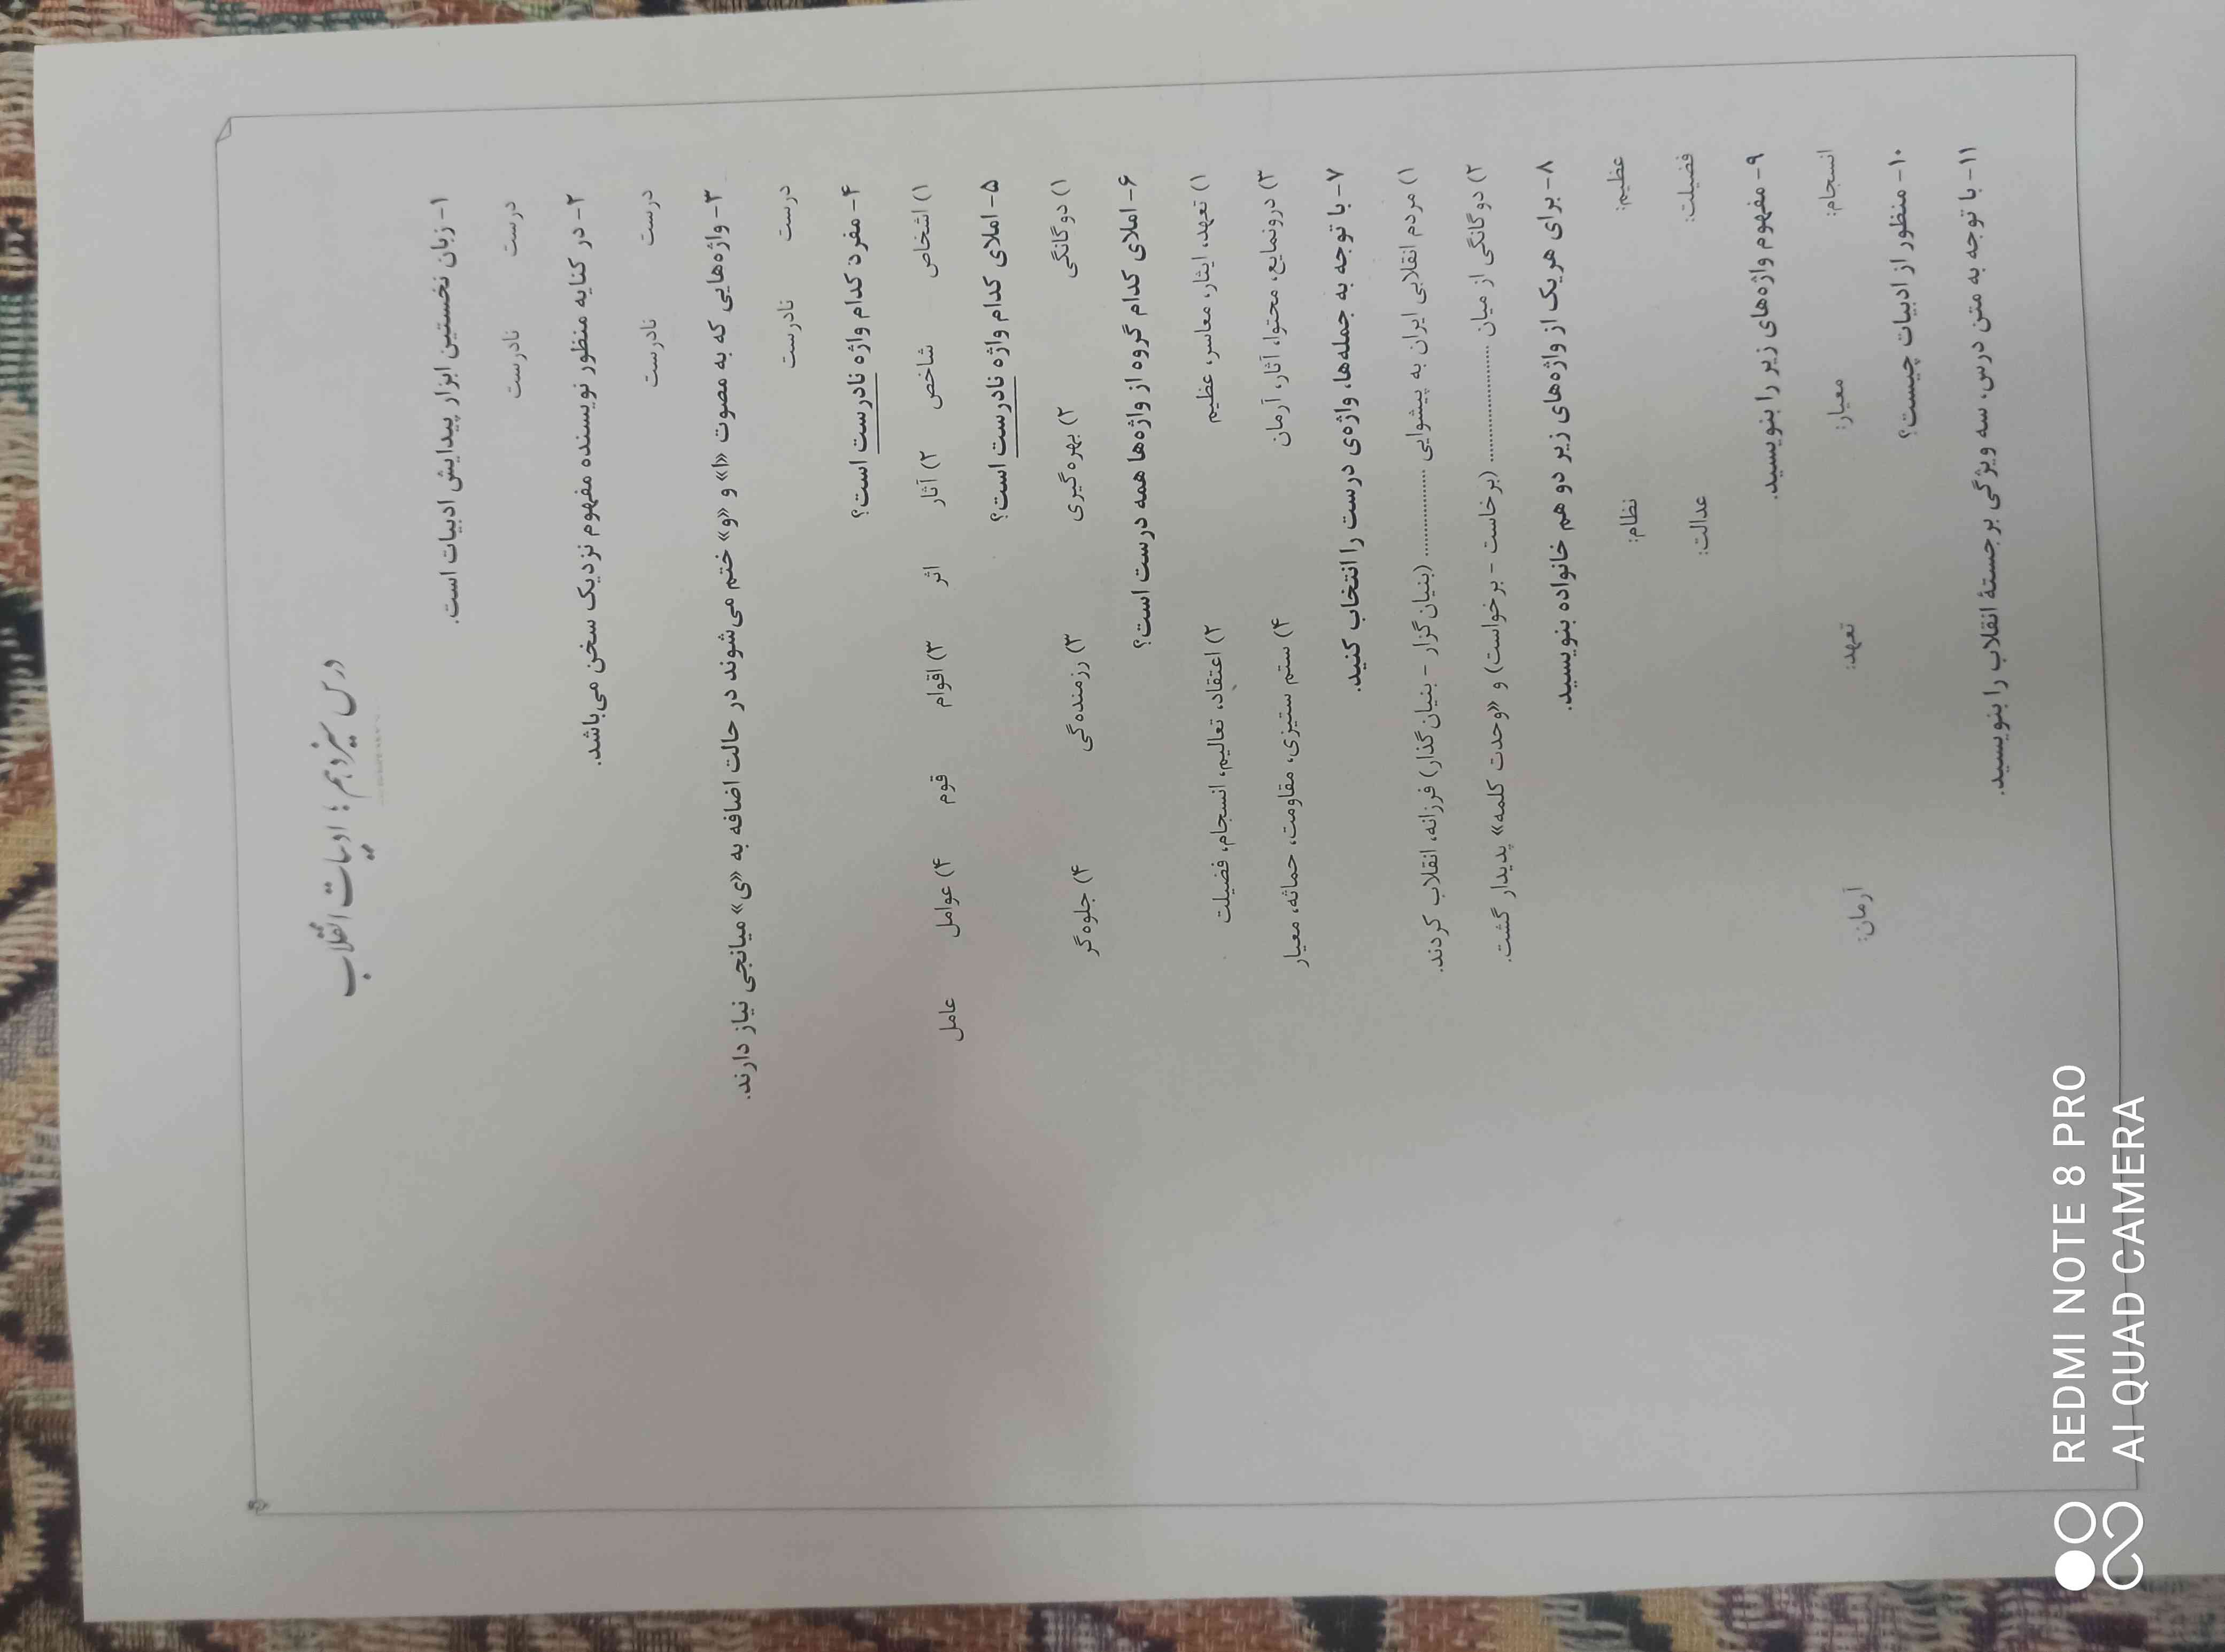 درس سیزدهم؛ ادبیات انقلاب
۱- زبان نخستین ابزار پیدایش ادبیات است.
درست نادرست
۲- در کنایه منظور نویسنده مفهوم نزدیک سخن می‌باشد.
درست نادرست
۳- واژه‌هایی که به مصوت «ا» و «و» ختم می‌شوند در حالت اضافه به «ی» میانجی نیاز دارند.
درست نادرست
۴- مفرد کدام واژه نادرست است؟
۱) اشخاص شاخص ۲) آثار اثر ۳) اقوام قوم ۴) عوامل عامل
۵- املای کدام واژه نادرست است؟
۱) دوگانگی ۲) بهره‌گیری ۳) رزمنده‌گی ۴) جلوه‌گر
۶- املای کدام گروه از واژه‌ها همه درست است؟
۱) تعهد، ایثار، معاسر، عظیم ۲) اعتقاد، تعالیم، انسجام، فضیلت
۳) درونمایع، محتوا، آثار، آرمان ۴) ستم ستیزی، مقاومت، حماثه، معیار
۷- با توجه به جمله‌ها، واژه‌ی درست را انتخاب کنید.
۱) مردم انقلابی ایران به پیشوایی .................. (بنیان‌گزار - بنیان‌گذار) فرزانه، انقلاب کردند.
۲) دوگانگی از میان .................. (برخاست - برخواست) و «وحدت کلمه» پدیدار گشت.
۸- برای هریک از واژه‌های زیر دو هم خانواده بنویسید.
عظیم: نظام:
فضیلت: عدالت:
۹- مفهوم واژه‌های زیر را بنویسید.
انسجام: معیار: تعهد: آرمان:
۱۰- منظور از ادبیات چیست؟
۱۱- با توجه به متن درس، سه ویژگی برجستهٔ انقلاب را بنویسید.
REDMI NOTE 8 PRO
AI QUAD CAMERA